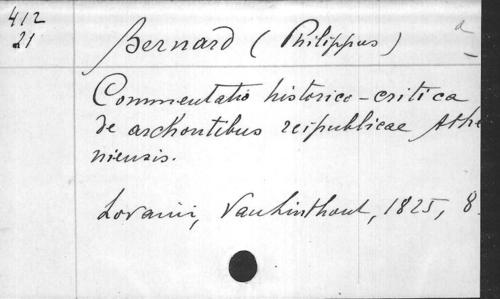 412
21
Bernard (Philippus)
a
Commentatio historico-critica
de archontibus reipublicae Athe
niensis.
Lovanii, Vanlinthout, 1825, 8